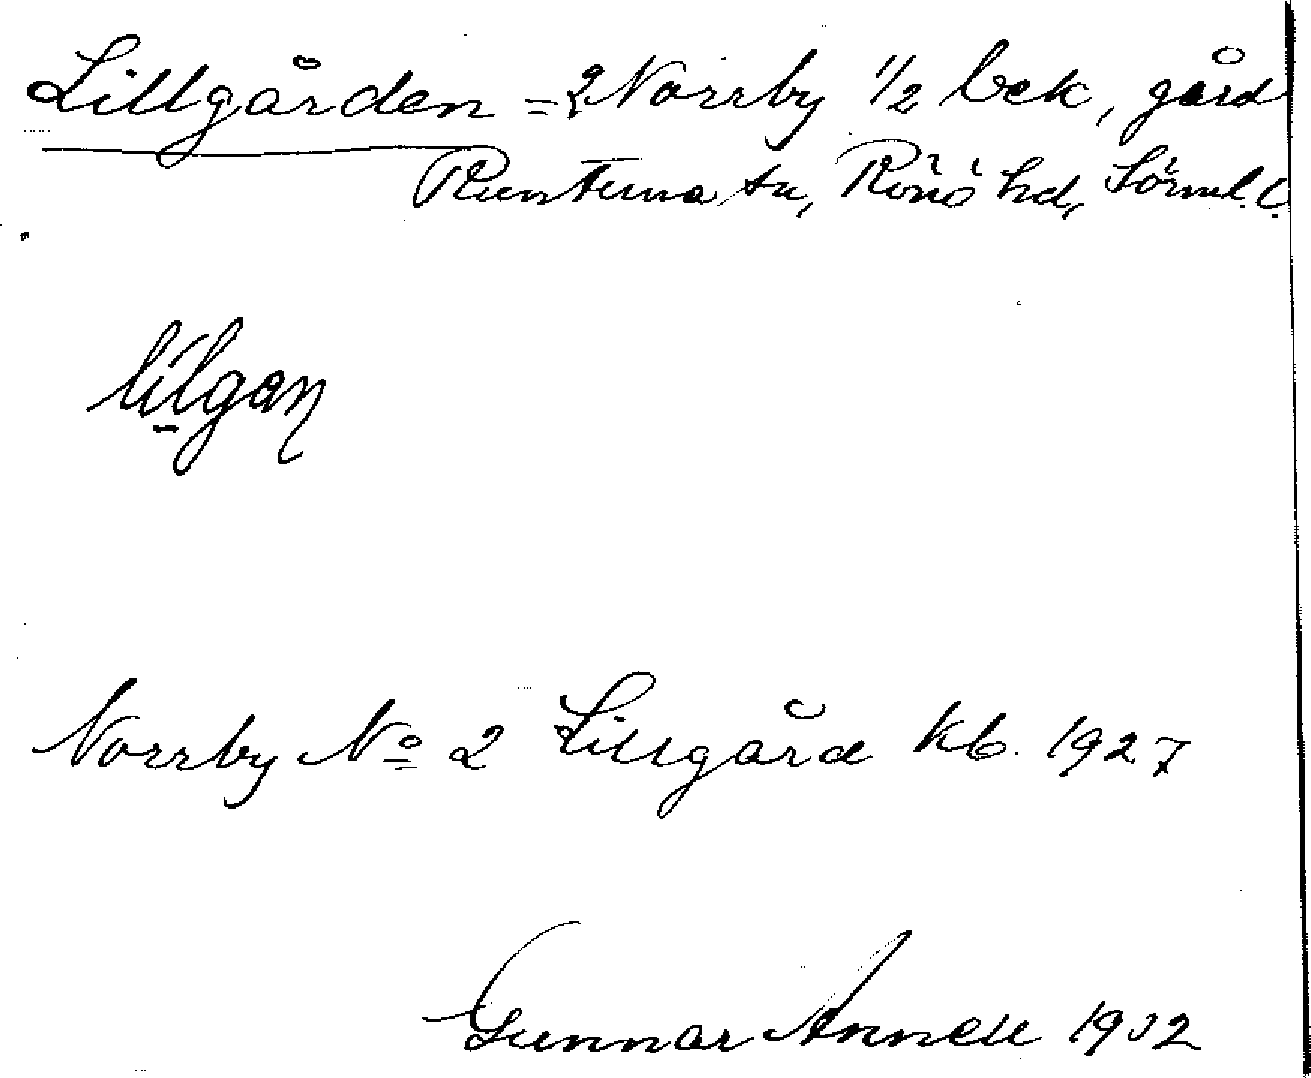 Lillgården = 2 Norrby 1/2 bek, gård
Runtuna sn, Rönö hd, Sörml. l.
Norrby No 2 Lillgård kb. 1927
Gunnar Annell 1932